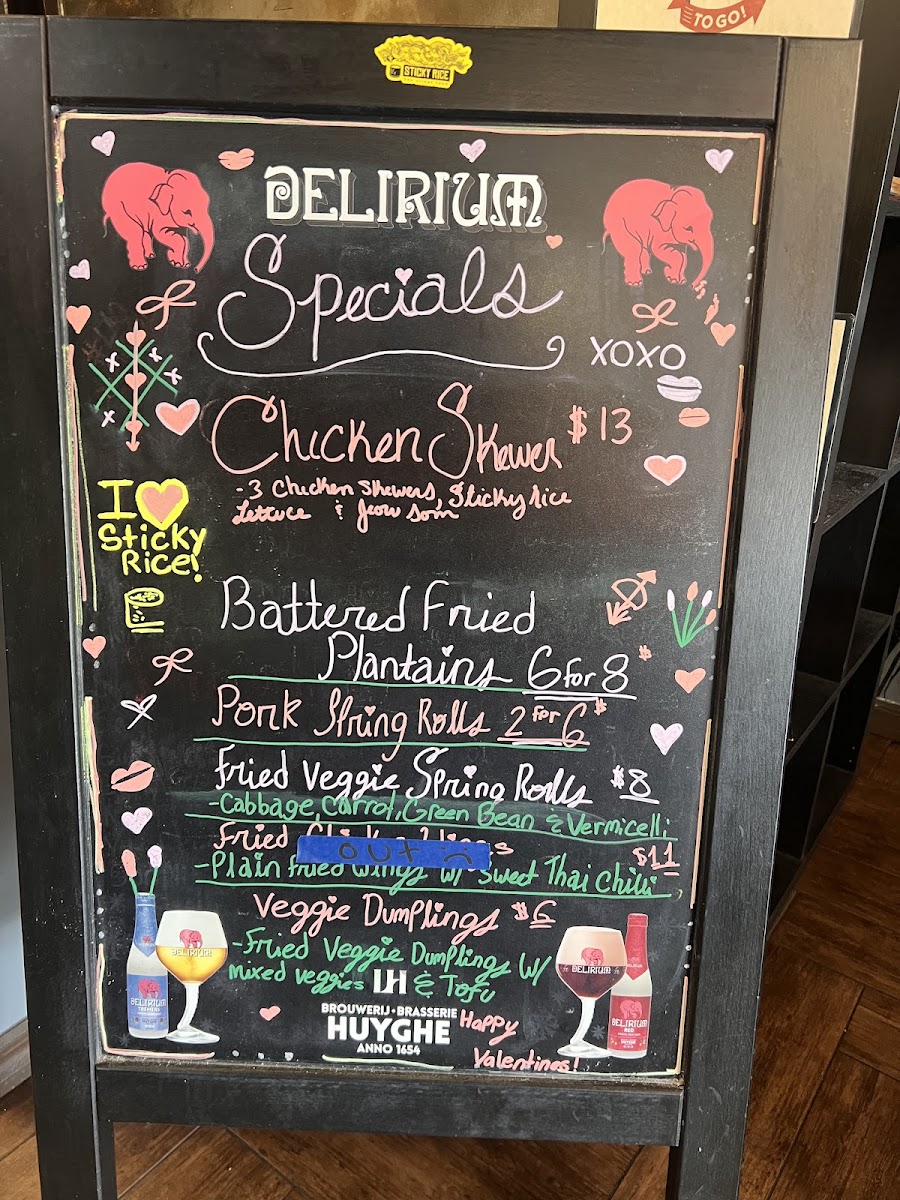 TO GO!
STICKY RICE
DELIRIUM
Specials
XOXO
Chicken Skewer $13
-3 Chicken Skewers, Sticky rice
Lettuce & jeow som
I
Sticky
Rice!
Battered Fried
Plantains 6 for 8 $
Pork Spring Rolls 2 for 6 $
Fried Veggie Spring Rolls $8
-Cabbage, Carrot, Green Bean & Vermicelli
Fried
OUT :(
$11
-Plain fried wings w/ Sweet Thai Chili
Veggie Dumplings $6
-Fried Veggie Dumplings W/
mixed veggies & Tofu
LH
BROUWERIJ • BRASSERIE
HUYGHE
ANNO 1654
Happy
Valentines!
DELIRIUM
DELIRIUM
TREMENS
DELIRIUM
DELIRIUM
RED